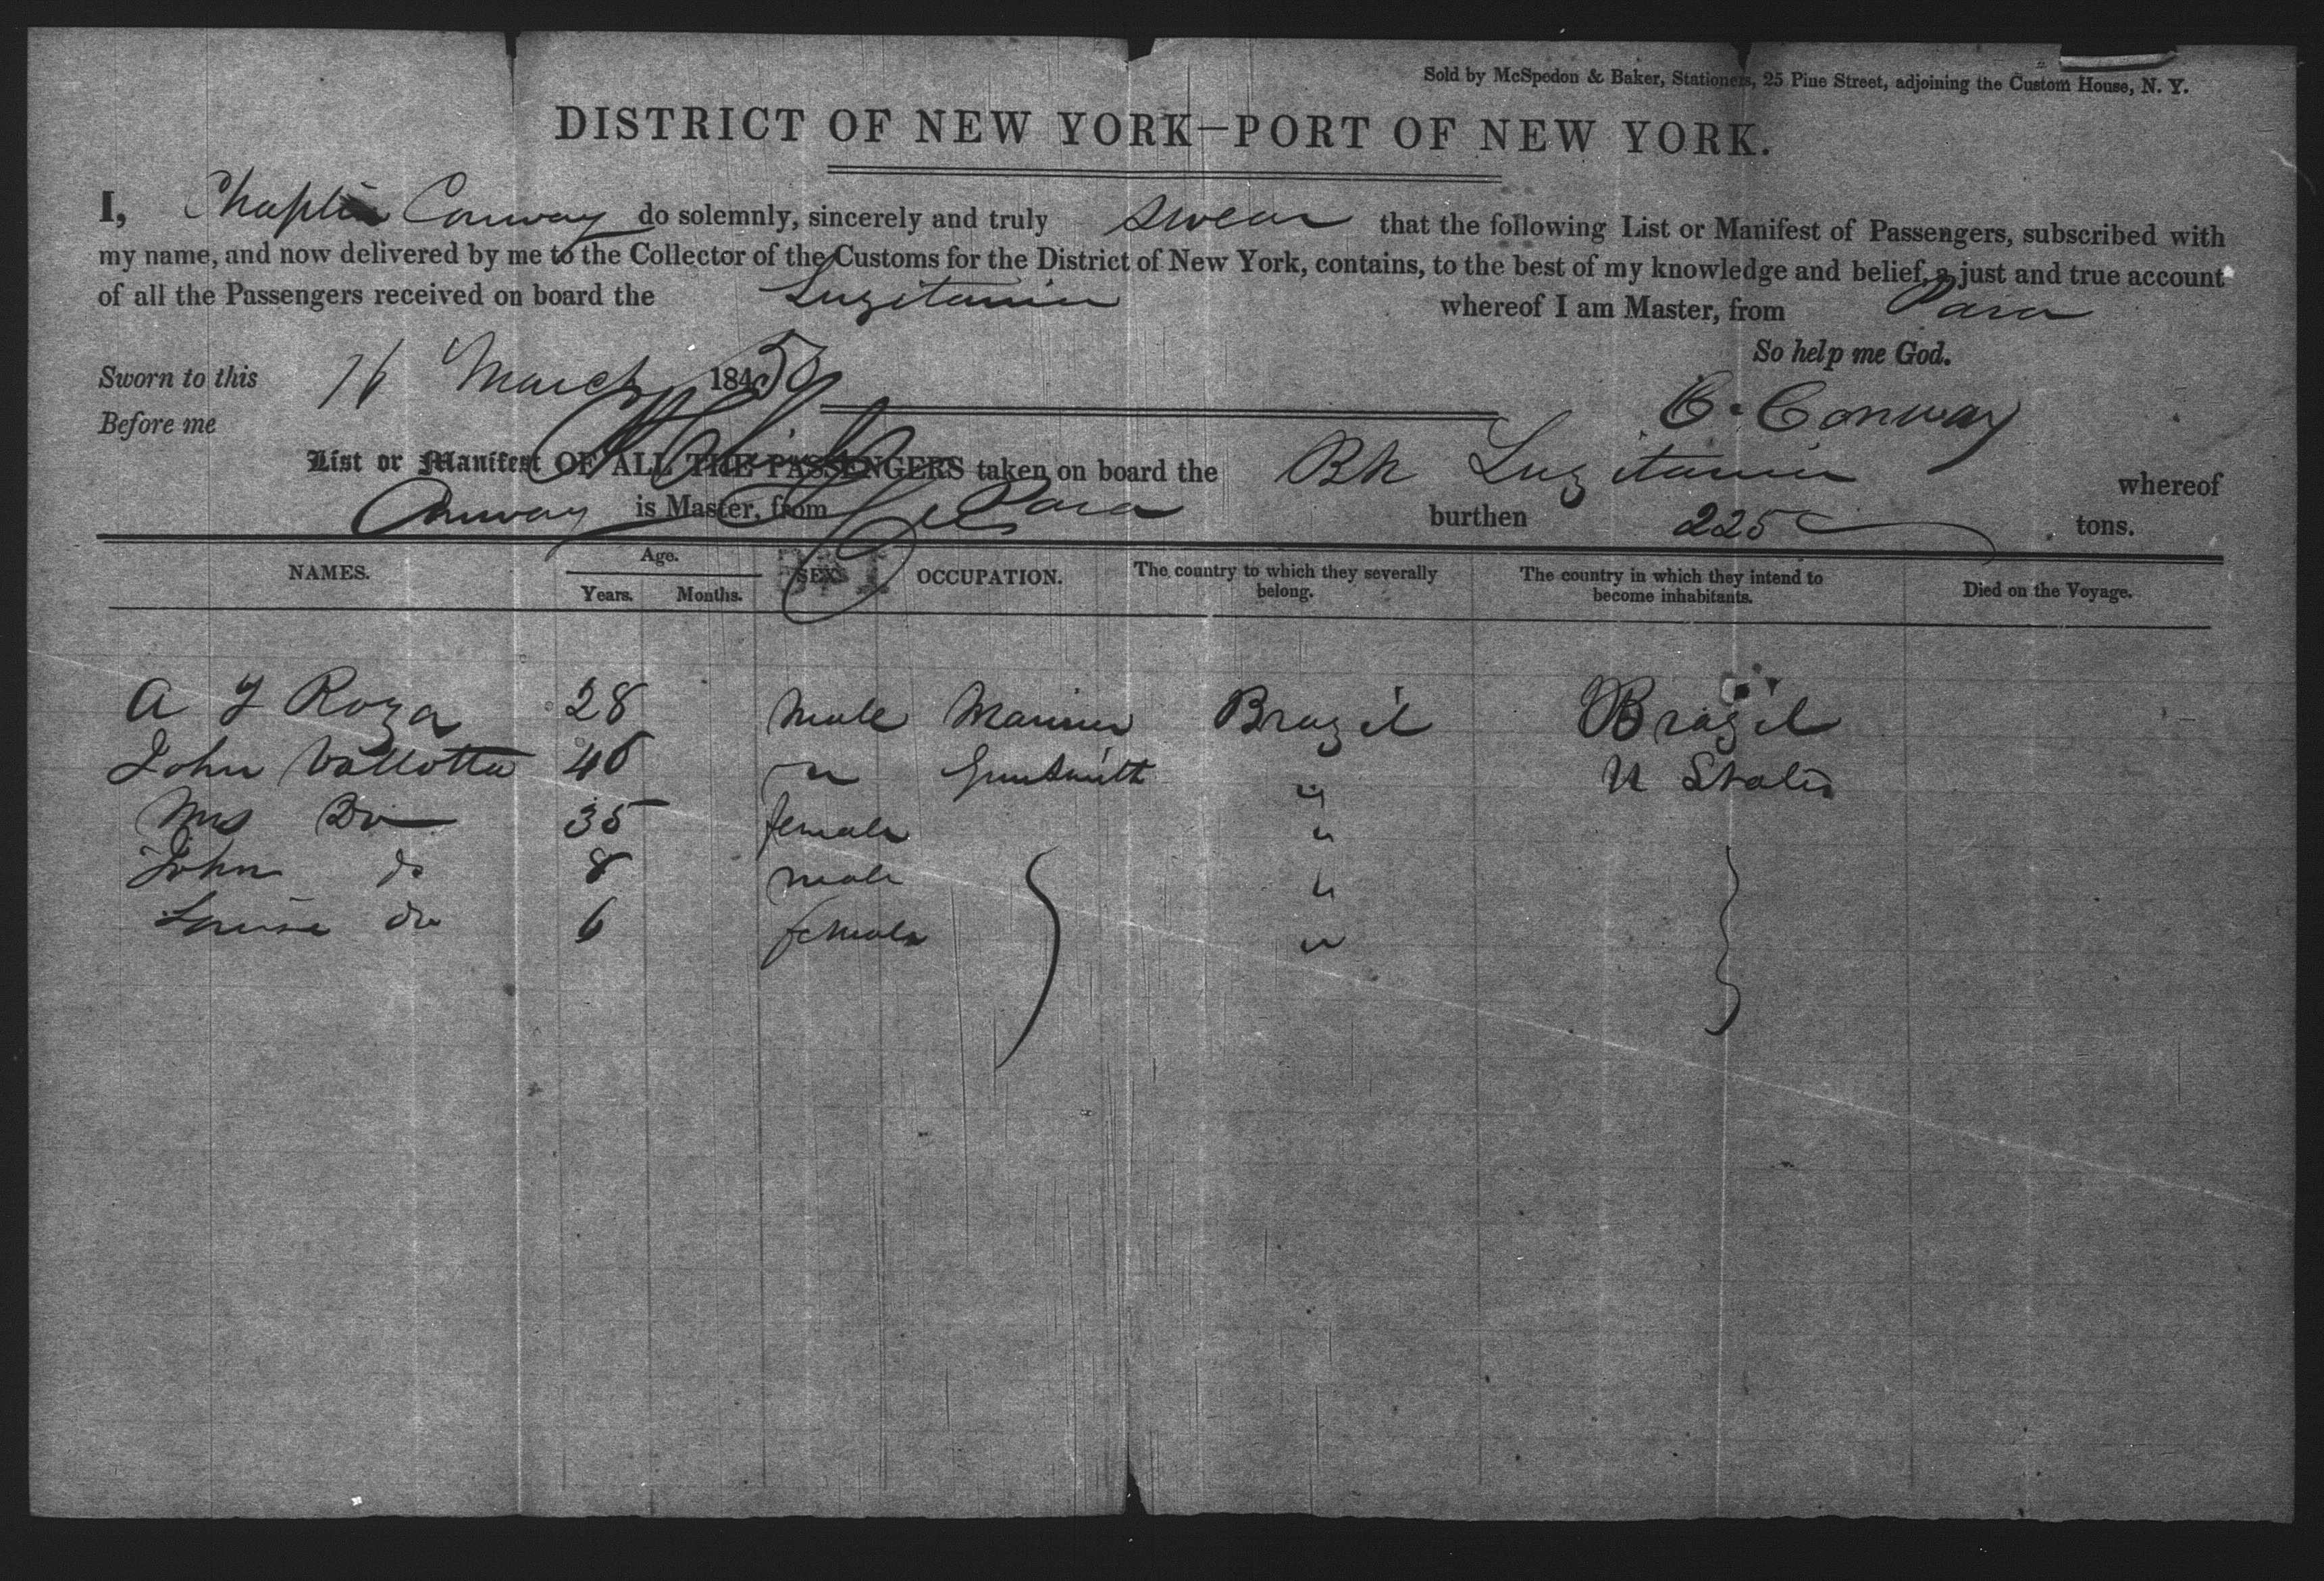 Sold by McSpedon & Baker, Stationers, 25 Pine Street, adjoining the Custom House, N. Y.
DISTRICT OF NEW YORK—PORT OF NEW YORK.
I, Chaplin Conway do solemnly, sincerely and truly swear that the following List or Manifest of Passengers, subscribed with
my name, and now delivered by me to the Collector of the Customs for the District of New York, contains, to the best of my knowledge and belief, a just and true account
of all the Passengers received on board the Luzitania whereof I am Master, from Para
So help me God.
Sworn to this 16 March 184 50
C. Conway
Before me
List or Manifest OF ALL THE PASSENGERS taken on board the Bk Luzitania whereof
Conway is Master, from Para burthen 225 tons.
NAMES. Age. Years. Months. SEX. OCCUPATION. The country to which they severally belong. The country in which they intend to become inhabitants. Died on the Voyage.
A Roza 28 Male Mariner Brazil Brazil
John Vallotta 40 " Gunsmith " U States
Mrs Do 35 female "
John do 8 male "
Louisa do 6 female "